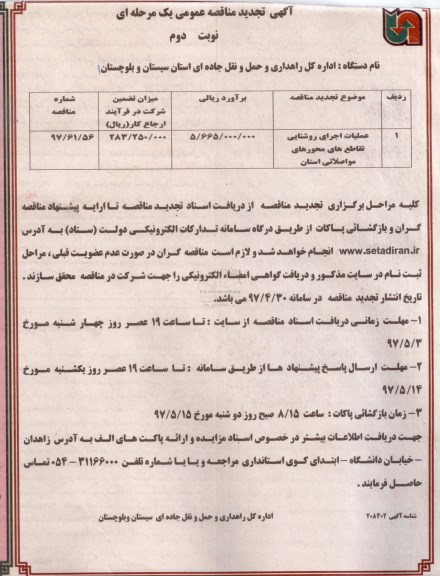 آگهی تجدید مناقصه عمومی یک مرحله ای
نوبت دوم
نام دستگاه : اداره کل راهداری و حمل و نقل جاده ای استان سیستان و بلوچستان
ردیف موضوع تجدید مناقصه برآورد ریالی میزان تضمین شرکت در فرآیند ارجاع کار(ریال) شماره مناقصه
۱ عملیات اجرای روشنایی تقاطع های محورهای مواصلاتی استان ۵/۶۶۵/۰۰۰/۰۰۰ ۲۸۳/۲۵۰/۰۰۰ ۹۷/۶۱/۵۶
کلیه مراحل برگزاری تجدید مناقصه از دریافت اسناد تجدید مناقصه تا ارایه پیشنهاد مناقصه
گران و بازگشائی پاکات از طریق درگاه سامانه تدارکات الکترونیکی دولت (ستاد) به آدرس
www.setadiran.ir انجام خواهد شد و لازم است مناقصه گران در صورت عدم عضویت قبلی ، مراحل
ثبت نام در سایت مذکور و دریافت گواهی امضاء الکترونیکی را جهت شرکت در مناقصه محقق سازند .
تاریخ انتشار تجدید مناقصه در سامانه ۹۷/۴/۳۰ می باشد.
۱- مهلت زمانی دریافت اسناد مناقصه از سایت : تا ساعت ۱۹ عصر روز چهار شنبه مورخ
۹۷/۵/۳
۲- مهلت ارسال پاسخ پیشنهاد ها از طریق سامانه : تا ساعت ۱۹ عصر روز یکشنبه مورخ
۹۷/۵/۱۴
۳- زمان بازگشائی پاکات : ساعت ۸/۱۵ صبح روز دو شنبه مورخ ۹۷/۵/۱۵
جهت دریافت اطلاعات بیشتر در خصوص اسناد مزایده و ارائه پاکت های الف به آدرس زاهدان
- خیابان دانشگاه - ابتدای کوی استانداری مراجعه و یا با شماره تلفن ۳۱۱۶۶۰۰۰ - ۰۵۴ تماس
حاصل فرمایند .
شناسه آگهی ۲۰۸۴۰۲ اداره کل راهداری و حمل و نقل جاده ای سیستان وبلوچستان